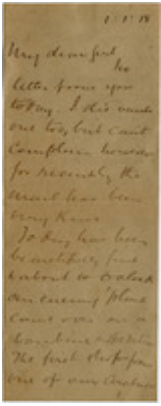 1.1.18
My dear girl
No
letter from you
today. I did want
one too, but can't
complain however
for recently the
mail has been
very kind
Today has been
beautiful, but
about 6 o'clock
an enemy 'plane
came over on a
The first drop from
one of our